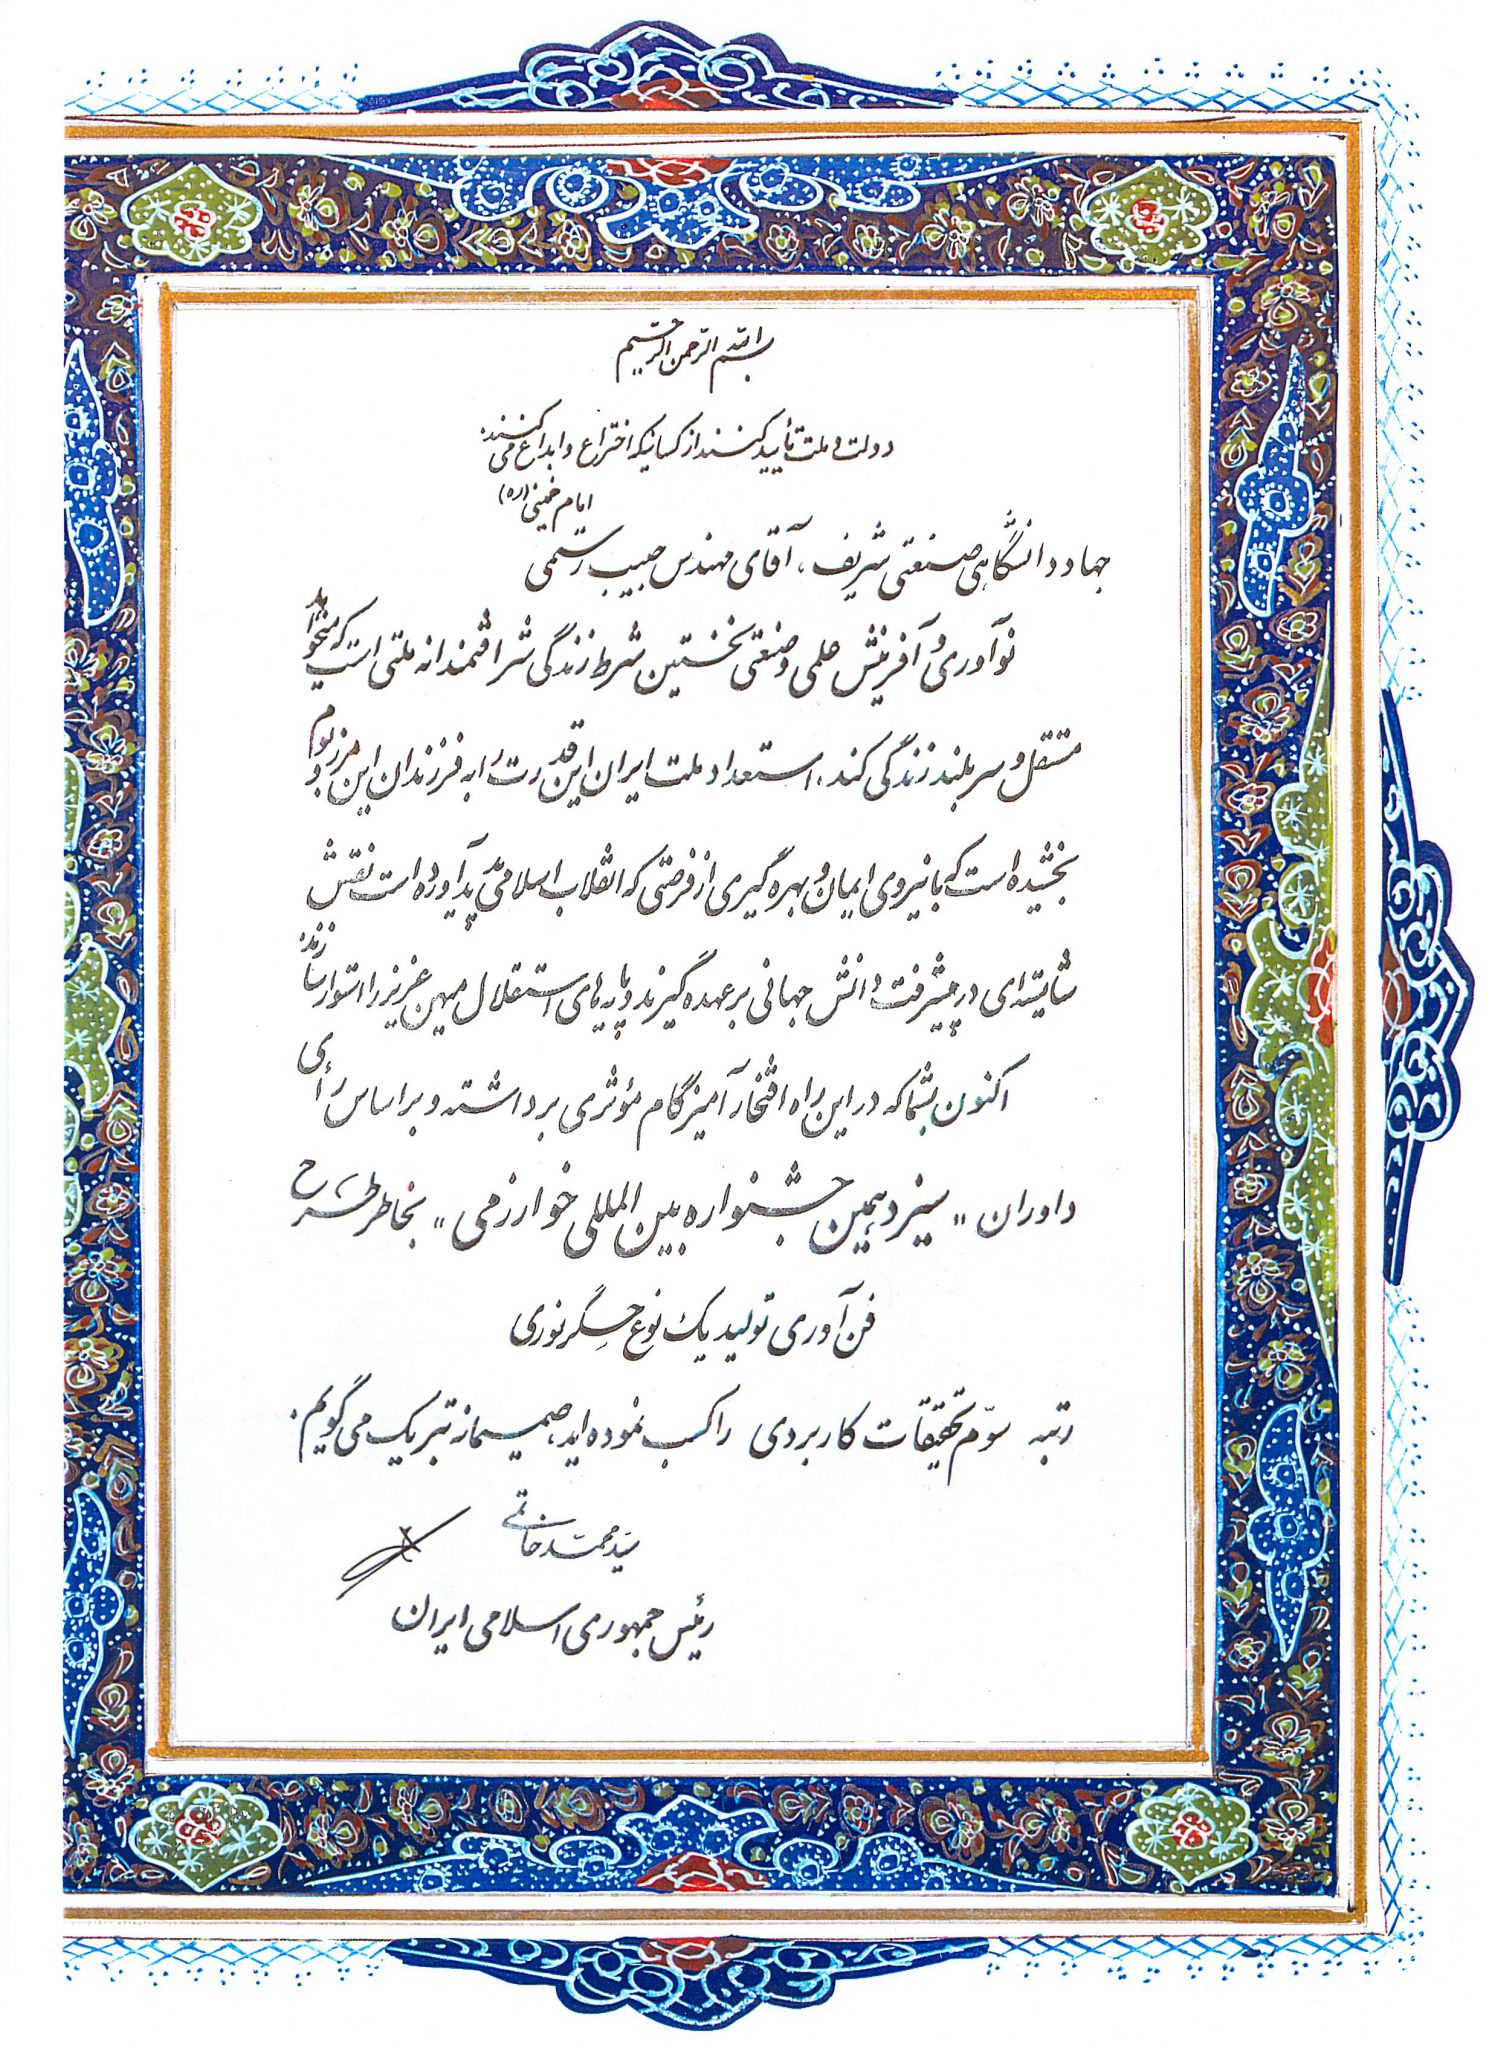 بسم الله الرحمن الرحیم
دولت و ملت تأیید کنند از کسانیکه اختراع و ابداع می‌کنند.
امام خمینی (ره)
جهاد دانشگاهی صنعتی شریف، آقای مهندس حبیب رستمی
نوآوری و آفرینش علمی و صنعتی نخستین شرط زندگی شرافتمندانه ملتی است که میخواهد
مستقل و سربلند زندگی کند. استعداد ملت ایران این قدرت را به فرزندان این مرز و بوم
بخشیده است که با نیروی ایمان و بهره گیری از فرصتی که انقلاب اسلامی پدید آورده است نقش
شایسته‌ای در پیشرفت دانش جهانی بر عهده گیرند و پایه‌های استقلال میهن عزیز را استوار سازند.
اکنون بشما که در این راه افتخار آمیز گام مؤثری برداشته و بر اساس رأی
داوران "سیزدهمین جشنواره بین المللی خوارزمی" بخاطر طرح
فن آوری تولید یک نوع حسگر نوری
رتبه سوّم تحقیقات کاربردی را کسب نموده اید، صمیمانه تبریک می گویم.
سیّد محمّد خاتمی
رئیس جمهوری اسلامی ایران